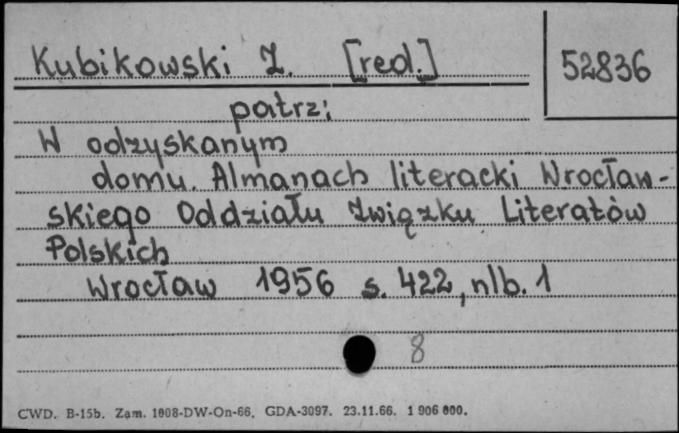 Kubikowski Z. [red.]
52836
patrz:
W odzyskanym
domu. Almanach literacki Wrocław-
skiego Oddziału Związku Literatów
Polskich
Wrocław 1956 s. 422, nlb. 1
8
CWD. B-15b. Zam. 1008-DW-On-66. GDA-3097. 23.11.66. 1 906 000.